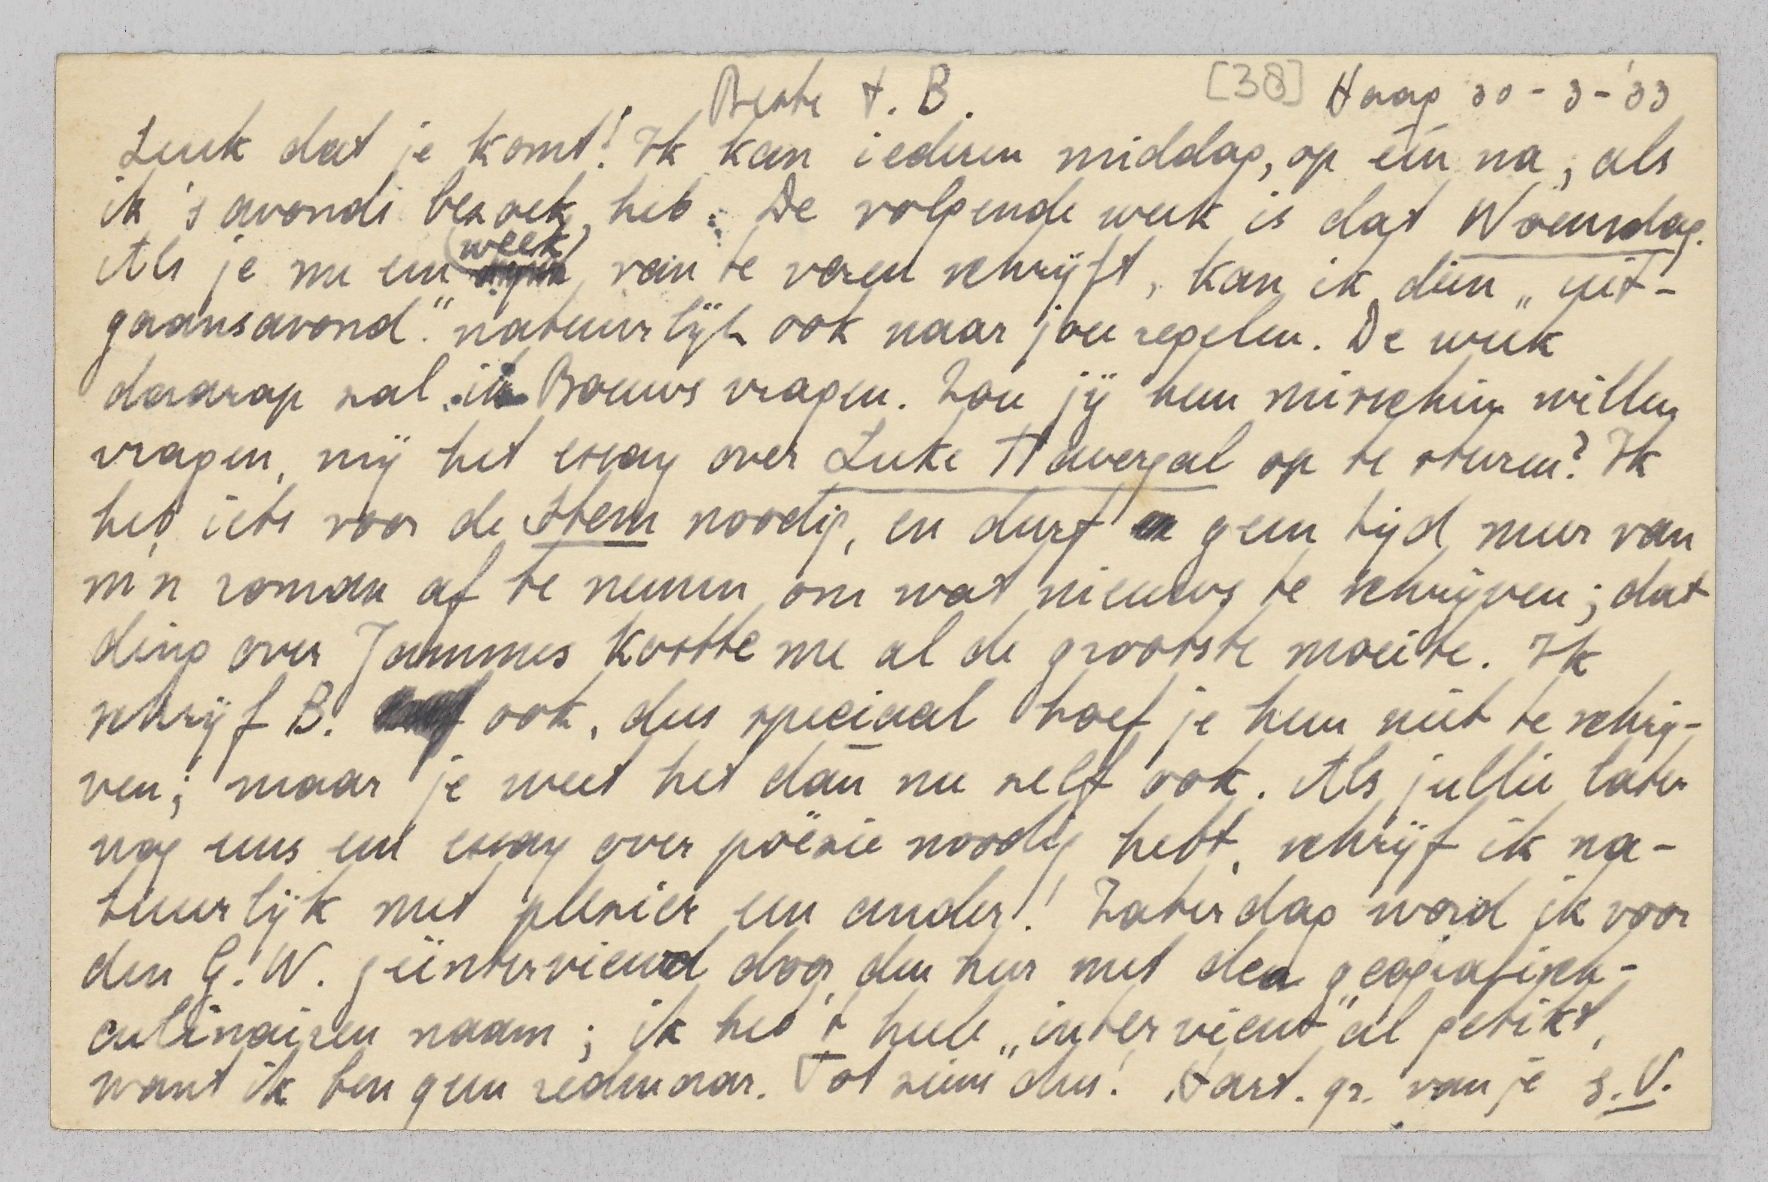 Beste t. B. [38] Haag 30-3-'33
Leuk dat je komt! Ik kan iederen middag, op één na, als
ik 's avonds bezoek heb. De volgende week is dat Woensdag.
Als je me een (week) van te voren schrijft, kan ik dien „uit-
gaansavond" natuurlijk ook naar jou regelen. De week
daarop zal ik Bouws vragen. Zou jij hem misschien willen
vragen, mij het essay over Luke Havergal op te sturen? Ik
heb iets voor de Stem noodig, en durf geen tijd meer van
m'n roman af te nemen om wat nieuws te schrijven; dat
ding over Jammes kostte me al de grootste moeite. Ik
schrijf B. ook, dus speciaal hoef je hem niet te schrij-
ven; maar je weet het dan nu zelf ook. Als jullie later
nog eens een essay over poëzie noodig hebt, schrijf ik na-
tuurlijk met plezier een ander! Zaterdag word ik voor
den G.W. geïnterviewd door den heer met den geografisch-
culinairen naam; ik heb 't heele „interview" al getikt,
want ik ben geen redenaar. Tot ziens dus! Hart. gr. van je S.V.